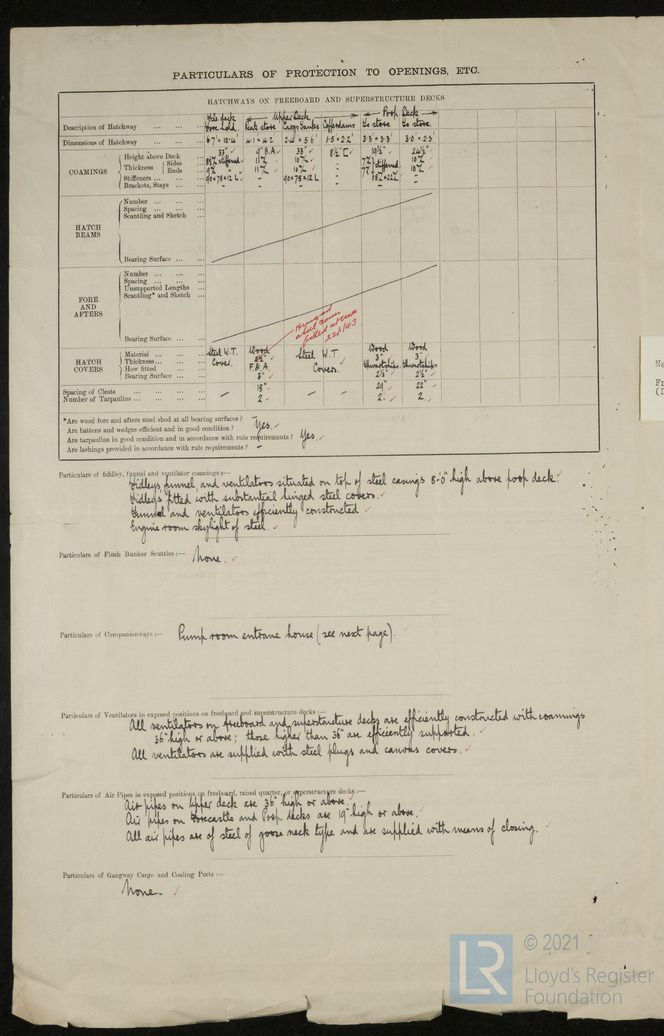 PARTICULARS OF PROTECTION TO OPENINGS, ETC.
HATCHWAYS ON FREEBOARD AND SUPERSTRUCTURE DECKS
Upper Deck Poop Deck
Description of Hatchway ... ... ... Fore hold Cargo Tanks Cofferdams Go store Go store
Dimensions of Hatchway ... ... ...
COAMINGS
Height above Deck 33" 9" B.A. 33" 8½" 19½" 24½"
Thickness Sides stiffened 11/16 stiffened
Ends
Stiffeners ... ... ... 90×75×12 L - 90×75×12 L -
Brackets, Stays ... ... - - - -
HATCH BEAMS
Number ... ... ...
Spacing ... ... ...
Scantling and Sketch ...
Bearing Surface ... ...
FORE AND AFTERS
Number ... ... ...
Spacing ... ... ...
Unsupported Lengths ...
Scantling* and Sketch ...
Bearing Surface ... ...
Hinged steel
fitted
HATCH COVERS
Material ... ... ... Steel W.T. Wood Steel W.T. Wood Wood
Thickness ... ... ... Cover. 2½" Covers. 3" 3"
How fitted ... ... F.&A. thwartships thwartships
Bearing Surface ... ... 3" 2½" 2½"
Spacing of Cleats ... ... ... ... - 18" - - 29" 22"
Number of Tarpaulins ... ... ... 2. 2. 2.
*Are wood fore and afters steel shod at all bearing surfaces? -
Are battens and wedges efficient and in good condition? Yes.
Are tarpaulins in good condition and in accordance with rule requirements? Yes.
Are lashings provided in accordance with rule requirements? -
Particulars of fiddley, funnel and ventilator coamings:—
Fidleys funnel, and ventilators situated on top of steel casings 8'-0" high above poop deck.
Fidleys fitted with substantial hinged steel covers.
Funnel and ventilators efficiently constructed
Engine room skylight of steel.
Particulars of Flush Bunker Scuttles:— None.
Particulars of Companionways:— Pump room entrane house (see next page).
Particulars of Ventilators in exposed positions on freeboard and superstructure decks:—
All ventilators on freeboard and superstructure decks are efficiently constructed with coamings
36" high or above; those higher than 36" are efficiently supported.
All ventilators are supplied with steel plugs and canvas covers.
Particulars of Air Pipes in exposed positions on freeboard, raised quarter, or superstructure decks:—
Air pipes on Upper deck are 36" high or above.
Air pipes on Forecastle and Poop Decks are 19" high or above.
All air pipes are of steel of goose neck type and are supplied with means of closing.
Particulars of Gangway Cargo and Coaling Ports:—
None.
LR
© 2021
Lloyd's Register
Foundation